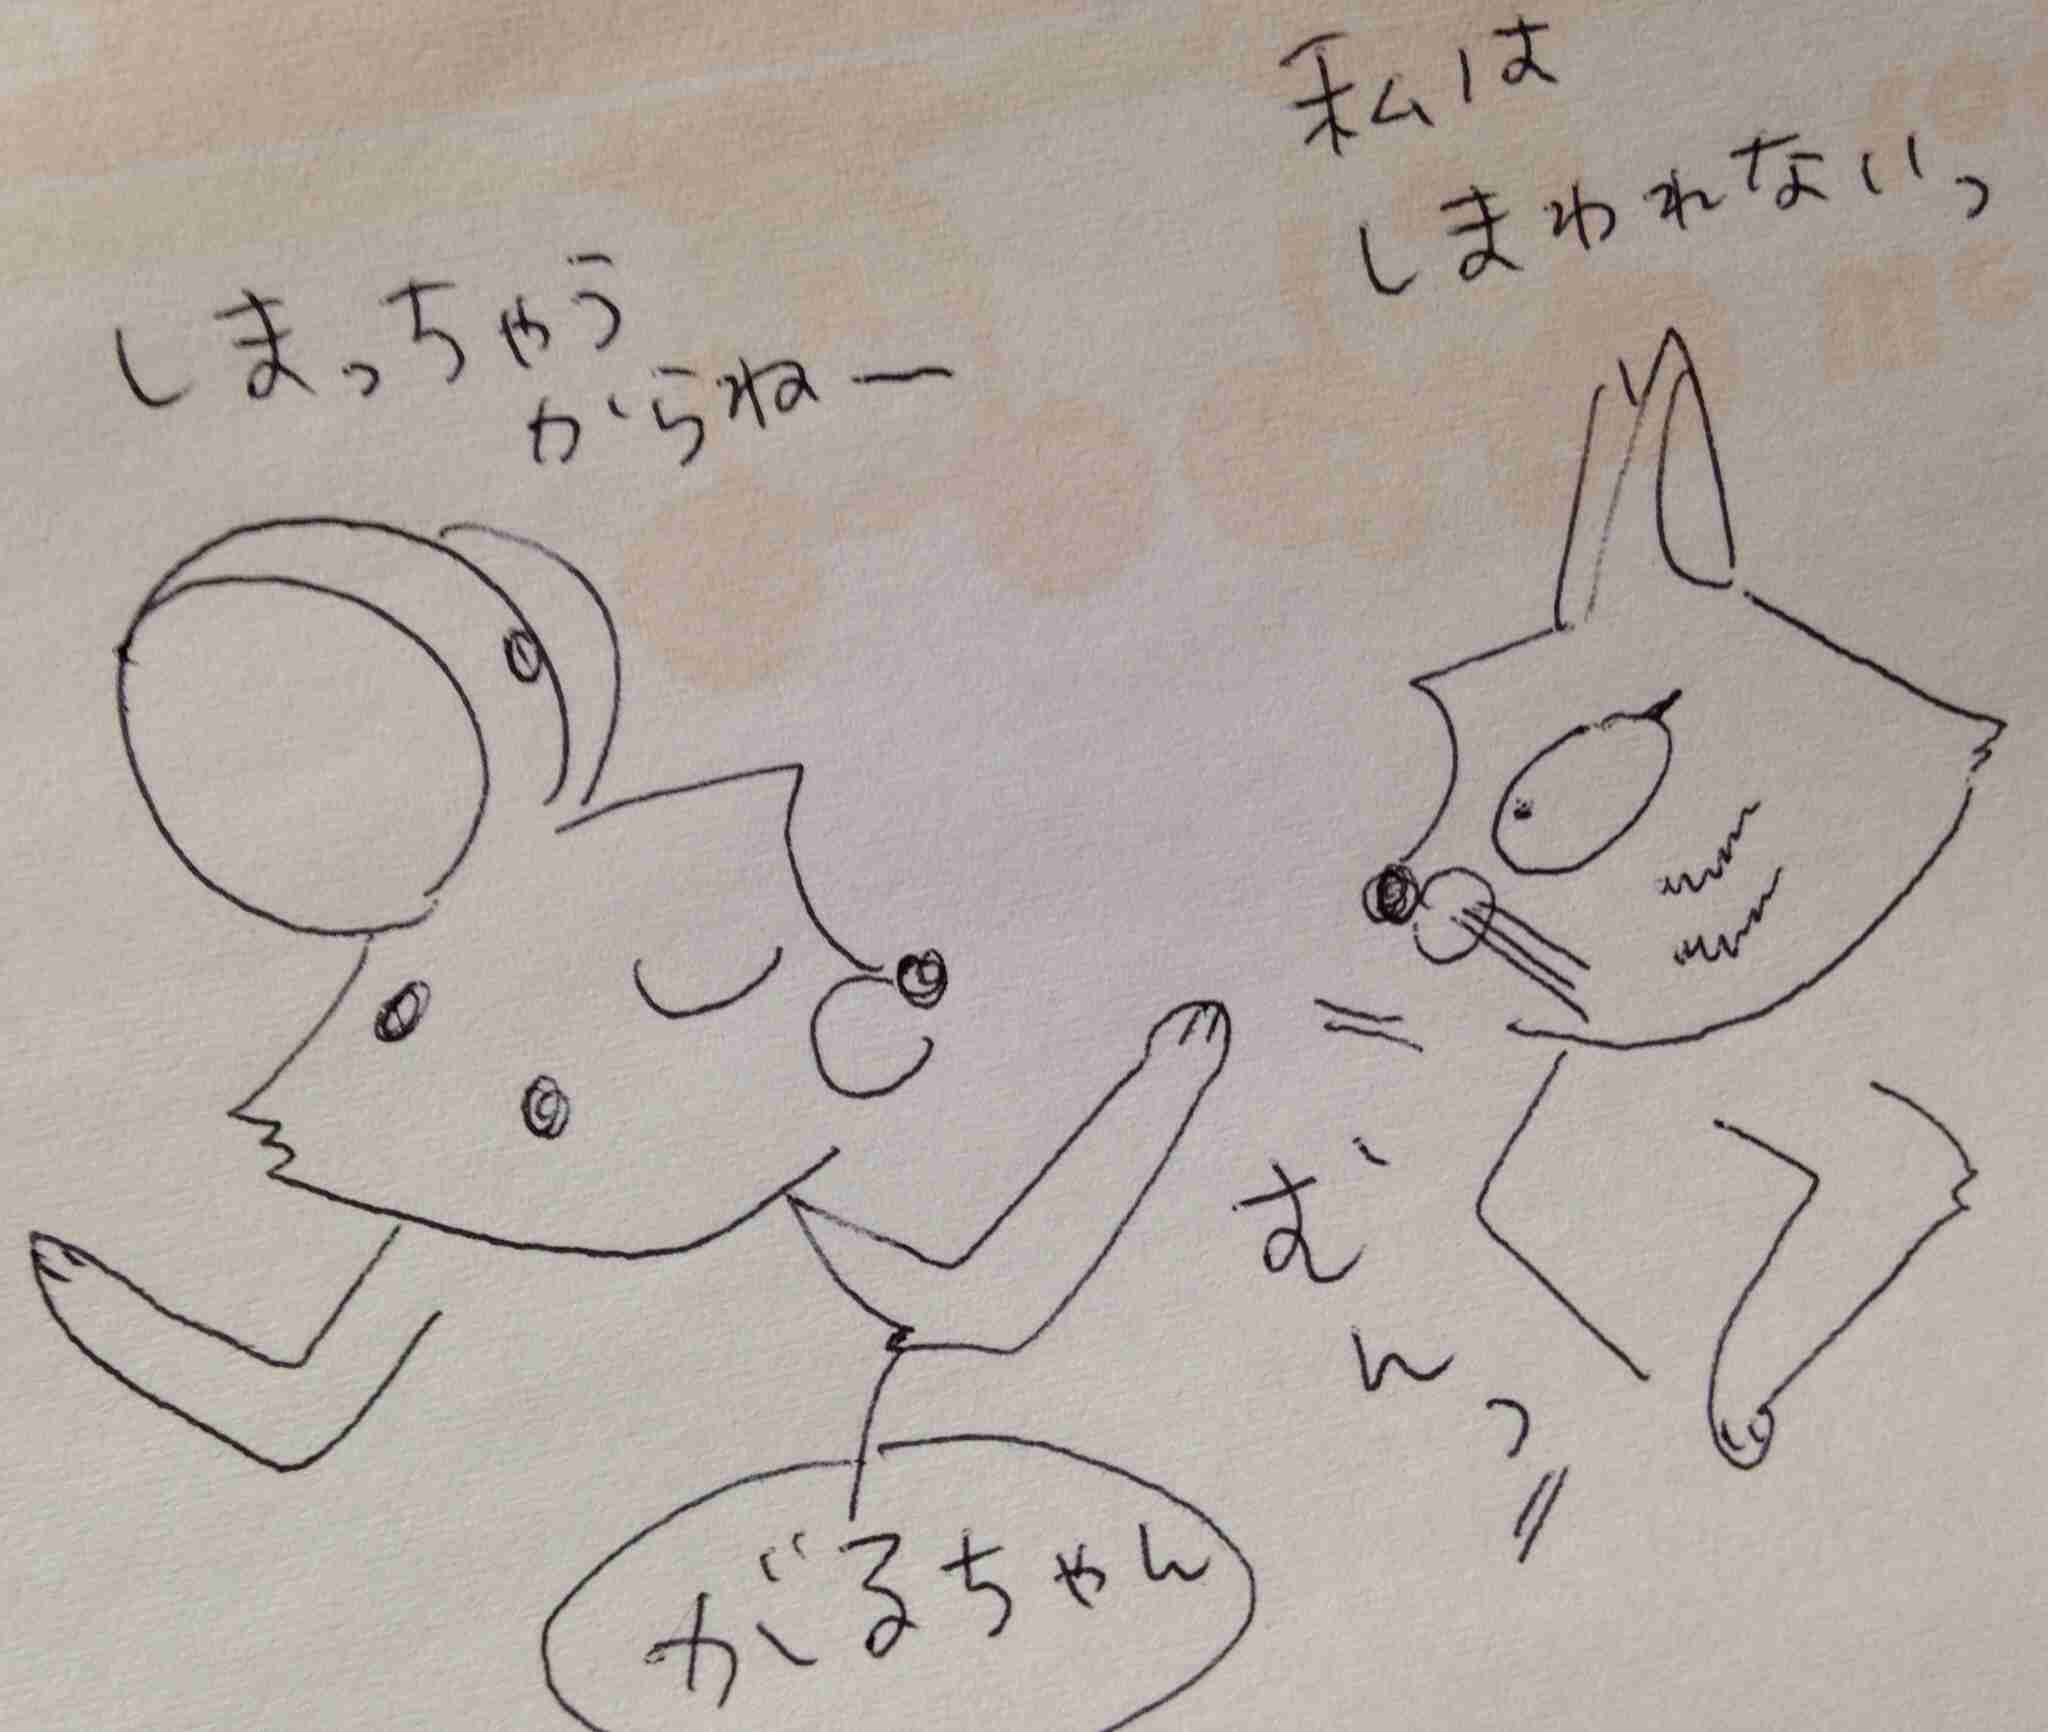 しまっちゃう
からねー
私は
しまわれないっ
むんっ
がるちゃん